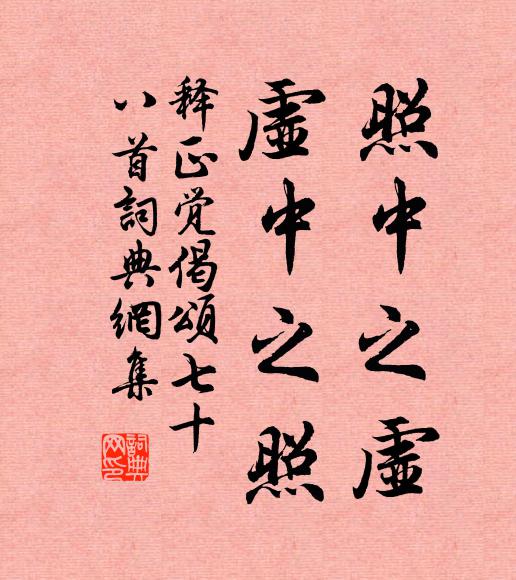 照中之虛
虛中之照
释正觉偈頌七十
八首詞典網集
詞典
网印